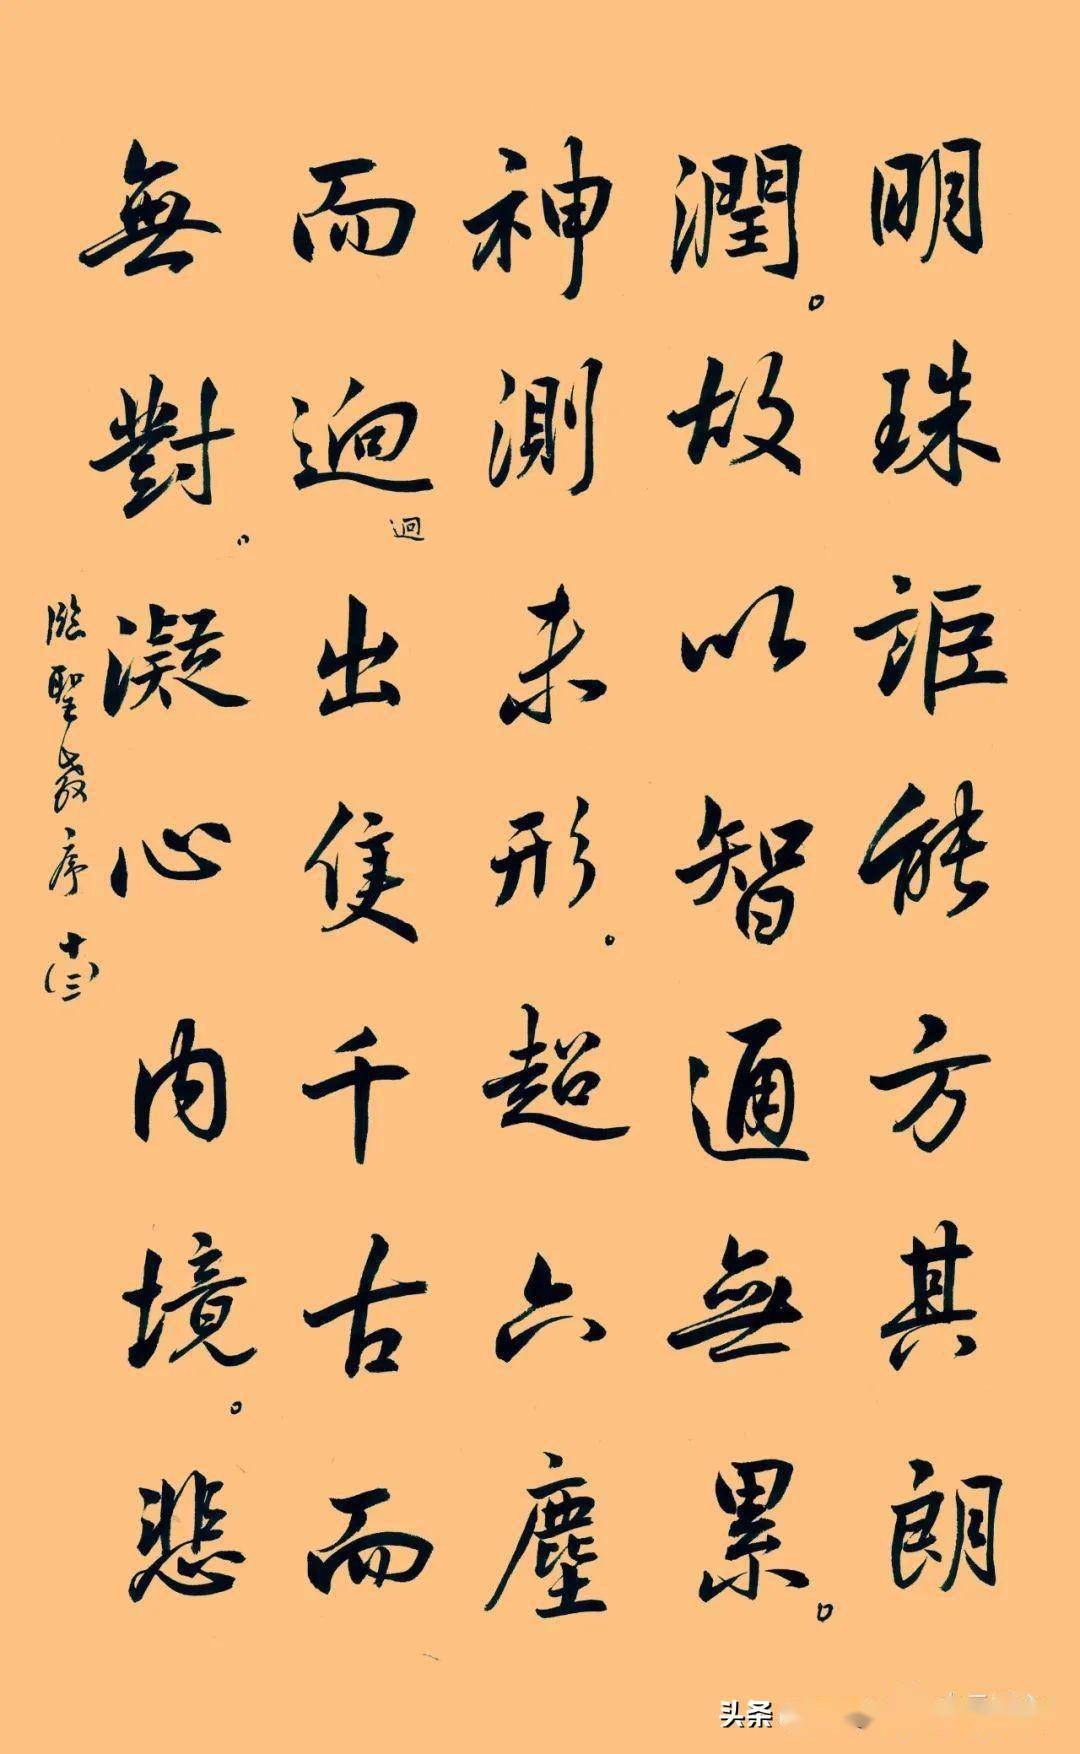 明珠詎能方其朗
潤。故以智通無累。
神測未形。超六塵
而迥出隻千古而
迥
無對。凝心内境。悲
臨聖教序 十三
头条